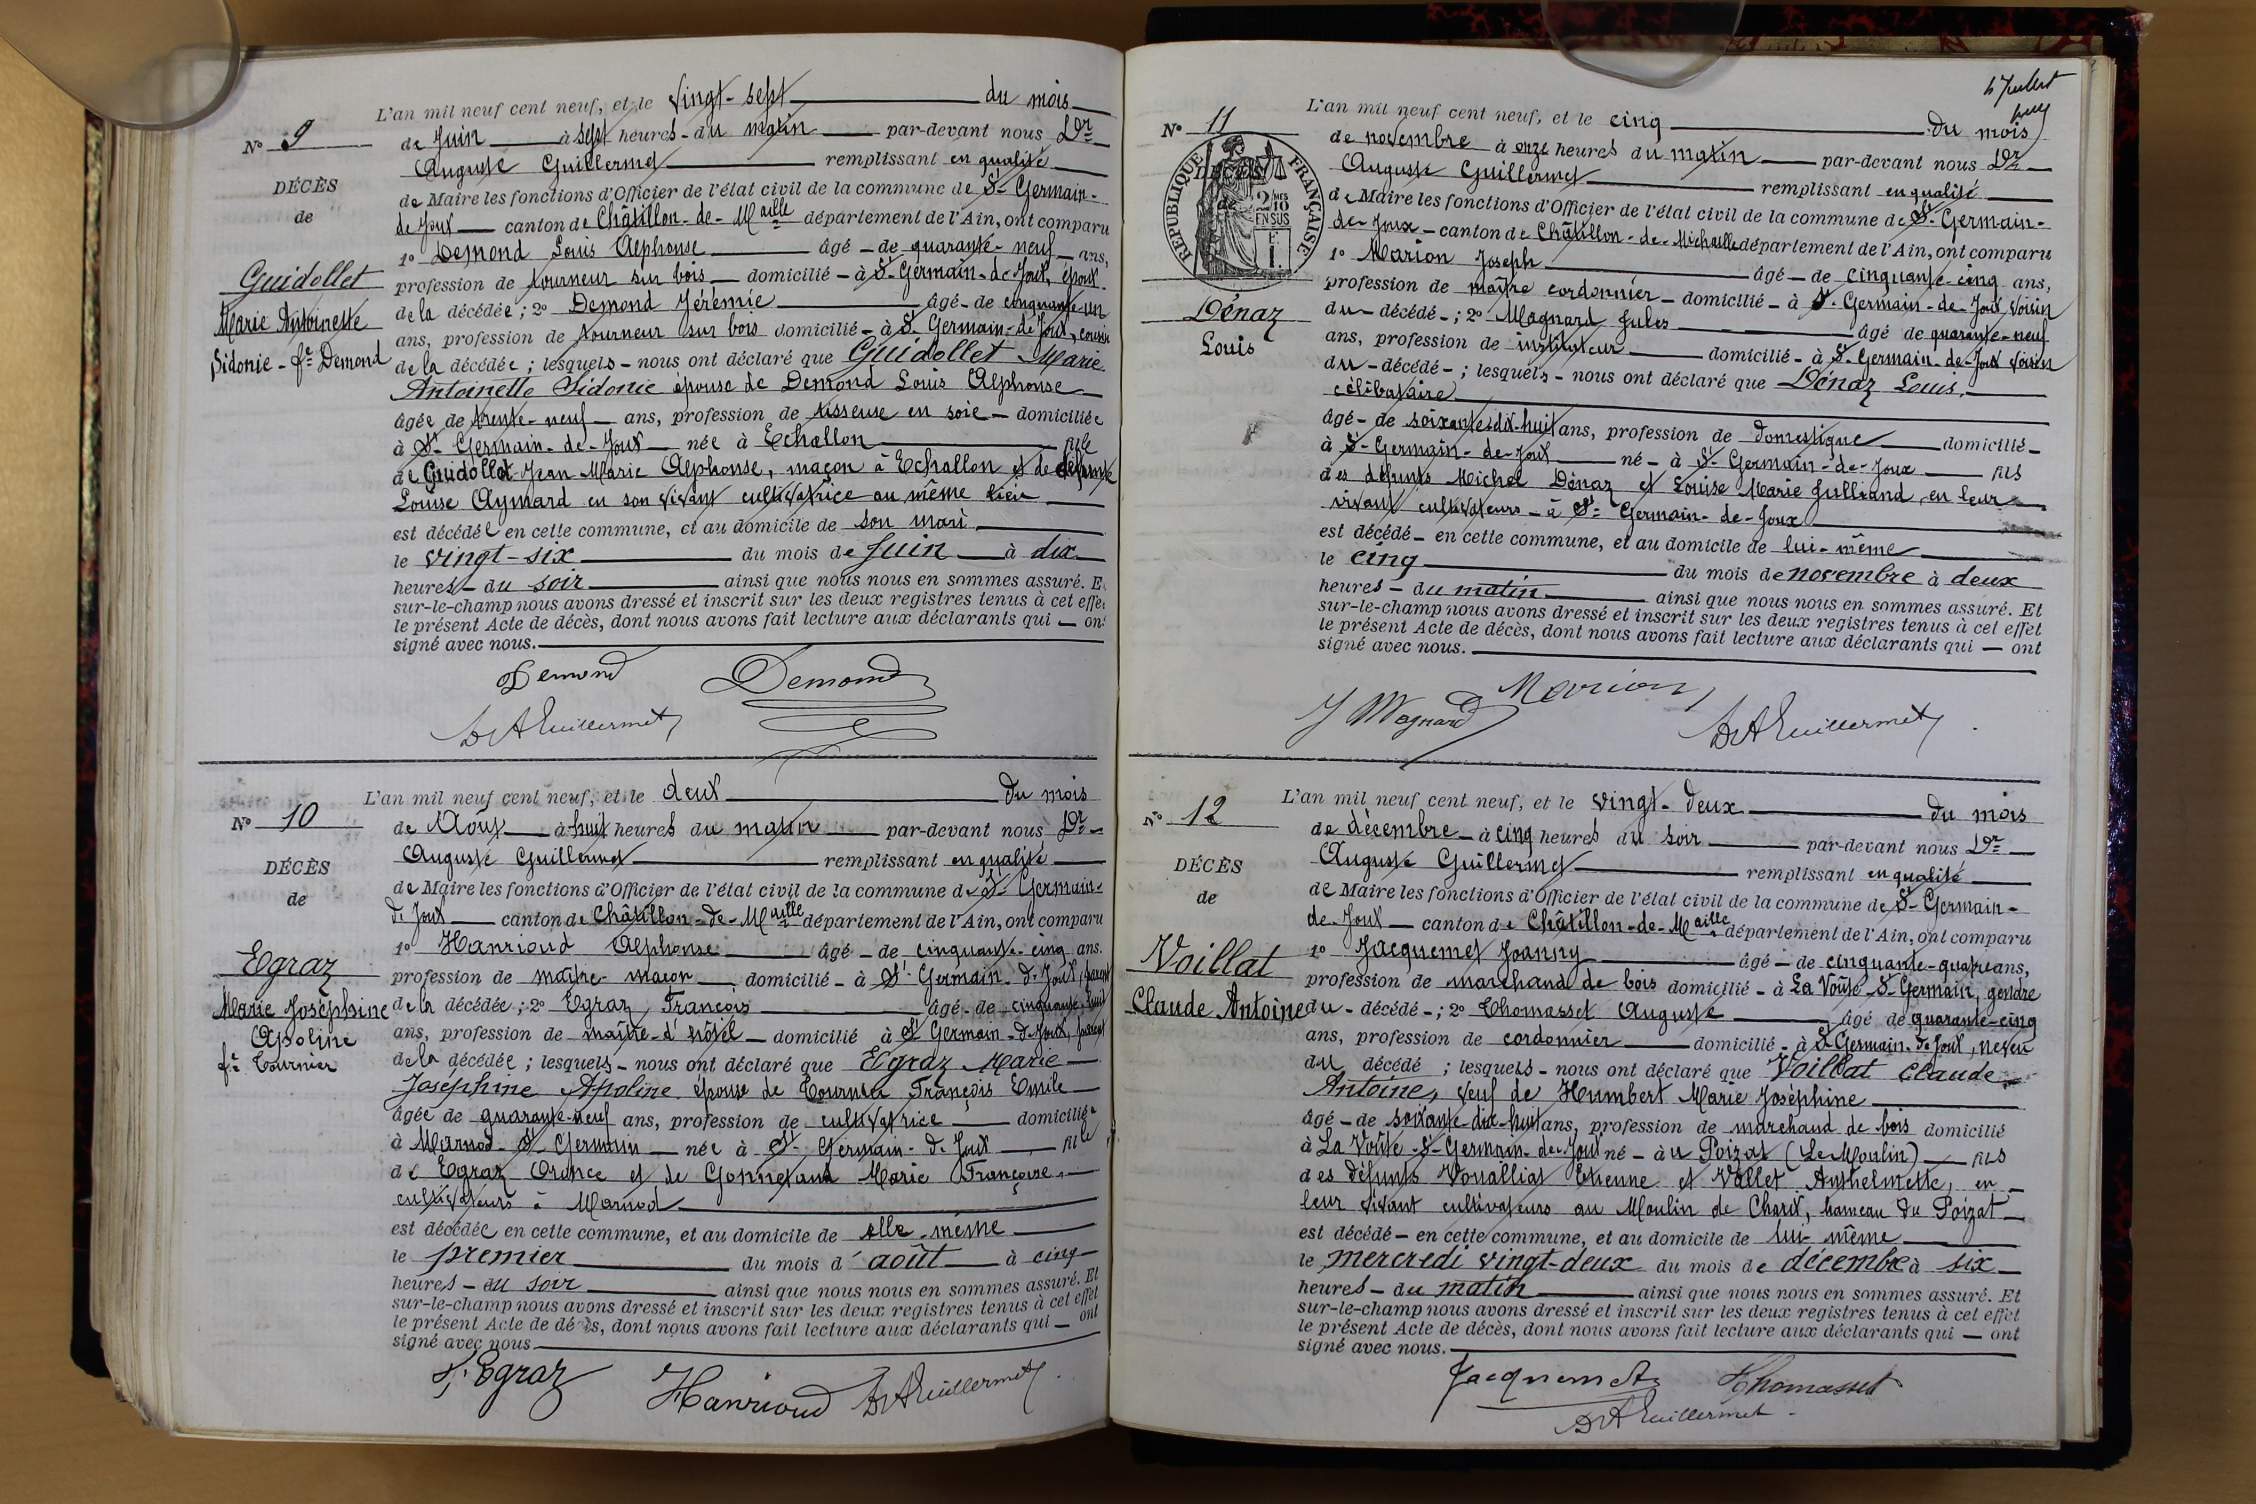 L'an mil neuf cent neuf, et le vingt-sept du mois
N° 9
de Juin à sept heures - du matin par-devant nous Dr
Auguste Guillermet remplissant en qualité
DÉCÈS
de Maire les fonctions d'Officier de l'état civil de la commune de St-Germain-
de
de Joux canton de Châtillon-de-Maille département de l'Ain, ont comparu
1° Demond Louis Alphonse âgé - de quarante-neuf ans,
Guidollet
profession de tourneur sur bois domicilié - à St-Germain-de-Joux, époux
de la décédée ; 2° Demond Jérémie âgé - de cinquante-un
Marie Antoinette
ans, profession de tourneur sur bois domicilié - à St Germain-de-Joux, cousin
Sidonie - fe Demond
de la décédée ; lesquels - nous ont déclaré que Guidollet Marie
Antoinette Sidonie épouse de Demond Louis Alphonse
âgée de trente-neuf ans, profession de tisseuse en soie domiciliée
à St-Germain-de-Joux née à Echallon fille
de Guidollet Jean Marie Alphonse, maçon à Echallon et de défunte
Louise Aymard en son vivant cultivatrice au même lieu
est décédée en cette commune, et au domicile de son mari
le vingt-six du mois de Juin à dix
heures - du soir ainsi que nous nous en sommes assuré. Et
sur-le-champ nous avons dressé et inscrit sur les deux registres tenus à cet effet
le présent Acte de décès, dont nous avons fait lecture aux déclarants qui — ont
signé avec nous.
Demond Demond
Dr A Guillermet
L'an mil neuf cent neuf, et le deux du mois
N° 10
de Août à huit heures du matin par-devant nous Dr
Auguste Guillermet remplissant en qualité
DÉCÈS
de Maire les fonctions d'Officier de l'état civil de la commune de St-Germain-
de
de Joux canton de Châtillon-de-Maille département de l'Ain, ont comparu
1° Hanrioud Alphonse âgé - de cinquante-cinq ans.
Egraz
profession de maître-maçon domicilié - à St-Germain-de-Joux, parent
Marie Joséphine
de la décédée ; 2° Egraz François âgé - de cinquante-huit
Apoline
ans, profession de maître-d'hôtel domicilié à St Germain-de-Joux, parent
fe Tournier
de la décédée ; lesquels - nous ont déclaré que Egraz Marie
Joséphine Apoline épouse de Tournier François Emile
âgée de quarante-neuf ans, profession de cultivatrice domiciliée
à Marnod St Germain née à St Germain-de-Joux fille
de Egraz Oronce et de Gonnetand Marie Françoise,
cultivateurs à Marnod
est décédée en cette commune, et au domicile de elle-même
le premier du mois d'août à cinq
heures - du soir ainsi que nous nous en sommes assuré. Et
sur-le-champ nous avons dressé et inscrit sur les deux registres tenus à cet effet
le présent Acte de décès, dont nous avons fait lecture aux déclarants qui — ont
signé avec nous
F. Egraz Hanrioud Dr A Guillermet
L'an mil neuf cent neuf, et le cinq du mois
N° 11
de novembre à onze heures du matin par-devant nous Dr
Auguste Guillermet remplissant en qualité
DÉCÈS
RÉPUBLIQUE FRANÇAISE
2/10 EN SUS
de Maire les fonctions d'Officier de l'état civil de la commune de St-Germain-
de-Joux - canton de Châtillon-de-Michaille département de l'Ain, ont comparu
1° Marion Joseph âgé - de cinquante-cinq ans,
profession de maître cordonnier - domicilié - à St-Germain-de-Joux, voisin
Dénaz
du - décédé - ; 2° Magnard Jules âgé de quarante-neuf
Louis
ans, profession de instituteur domicilié - à St-Germain-de-Joux voisin
du - décédé - ; lesquels - nous ont déclaré que Dénaz Louis,
célibataire
âgé - de soixante-dix-huit ans, profession de domestique domicilié -
à St-Germain-de-Joux né - à St-Germain-de-Joux fils
des défunts Michel Dénaz et Louise Marie Julliand, en leur
vivant cultivateurs - à St-Germain-de-Joux
est décédé - en cette commune, et au domicile de lui-même
le cinq du mois de novembre à deux
heures - du matin ainsi que nous nous en sommes assuré. Et
sur-le-champ nous avons dressé et inscrit sur les deux registres tenus à cet effet
le présent Acte de décès, dont nous avons fait lecture aux déclarants qui — ont
signé avec nous.
J Magnard Marion
Dr A Guillermet
L'an mil neuf cent neuf, et le vingt-deux du mois
N° 12
de décembre - à cinq heures du soir par-devant nous Dr
Auguste Guillermet remplissant en qualité
DÉCÈS
de Maire les fonctions d'Officier de l'état civil de la commune de St-Germain-
de
de-Joux canton de Châtillon-de-Maille département de l'Ain, ont comparu
1° Jacquemet Joanny âgé - de cinquante-quatre ans,
Voillat
profession de marchand de bois domicilié - à La Voûte-St-Germain, gendre
Claude Antoine
du - décédé - ; 2° Thomasset Auguste âgé de quarante-cinq
ans, profession de cordonnier domicilié - à St Germain-de Joux, neveu
du décédé ; lesquels - nous ont déclaré que Voillat Claude
Antoine, veuf de Humbert Marie Joséphine
âgé - de soixante-dix-huit ans, profession de marchand de bois domicilié
à La Voûte-St-Germain-de-Joux né - au Poizat (Le Moulin) fils
des défunts Voualliat Etienne et Vallet Anthelmette, en
leur vivant cultivateurs au Moulin de Charix, hameau du Poizat
est décédé - en cette commune, et au domicile de lui-même
le mercredi vingt-deux du mois de décembre à six
heures - du matin ainsi que nous nous en sommes assuré. Et
sur-le-champ nous avons dressé et inscrit sur les deux registres tenus à cet effet
le présent Acte de décès, dont nous avons fait lecture aux déclarants qui — ont
signé avec nous.
Jacquemet Thomasset
Dr A Guillermet